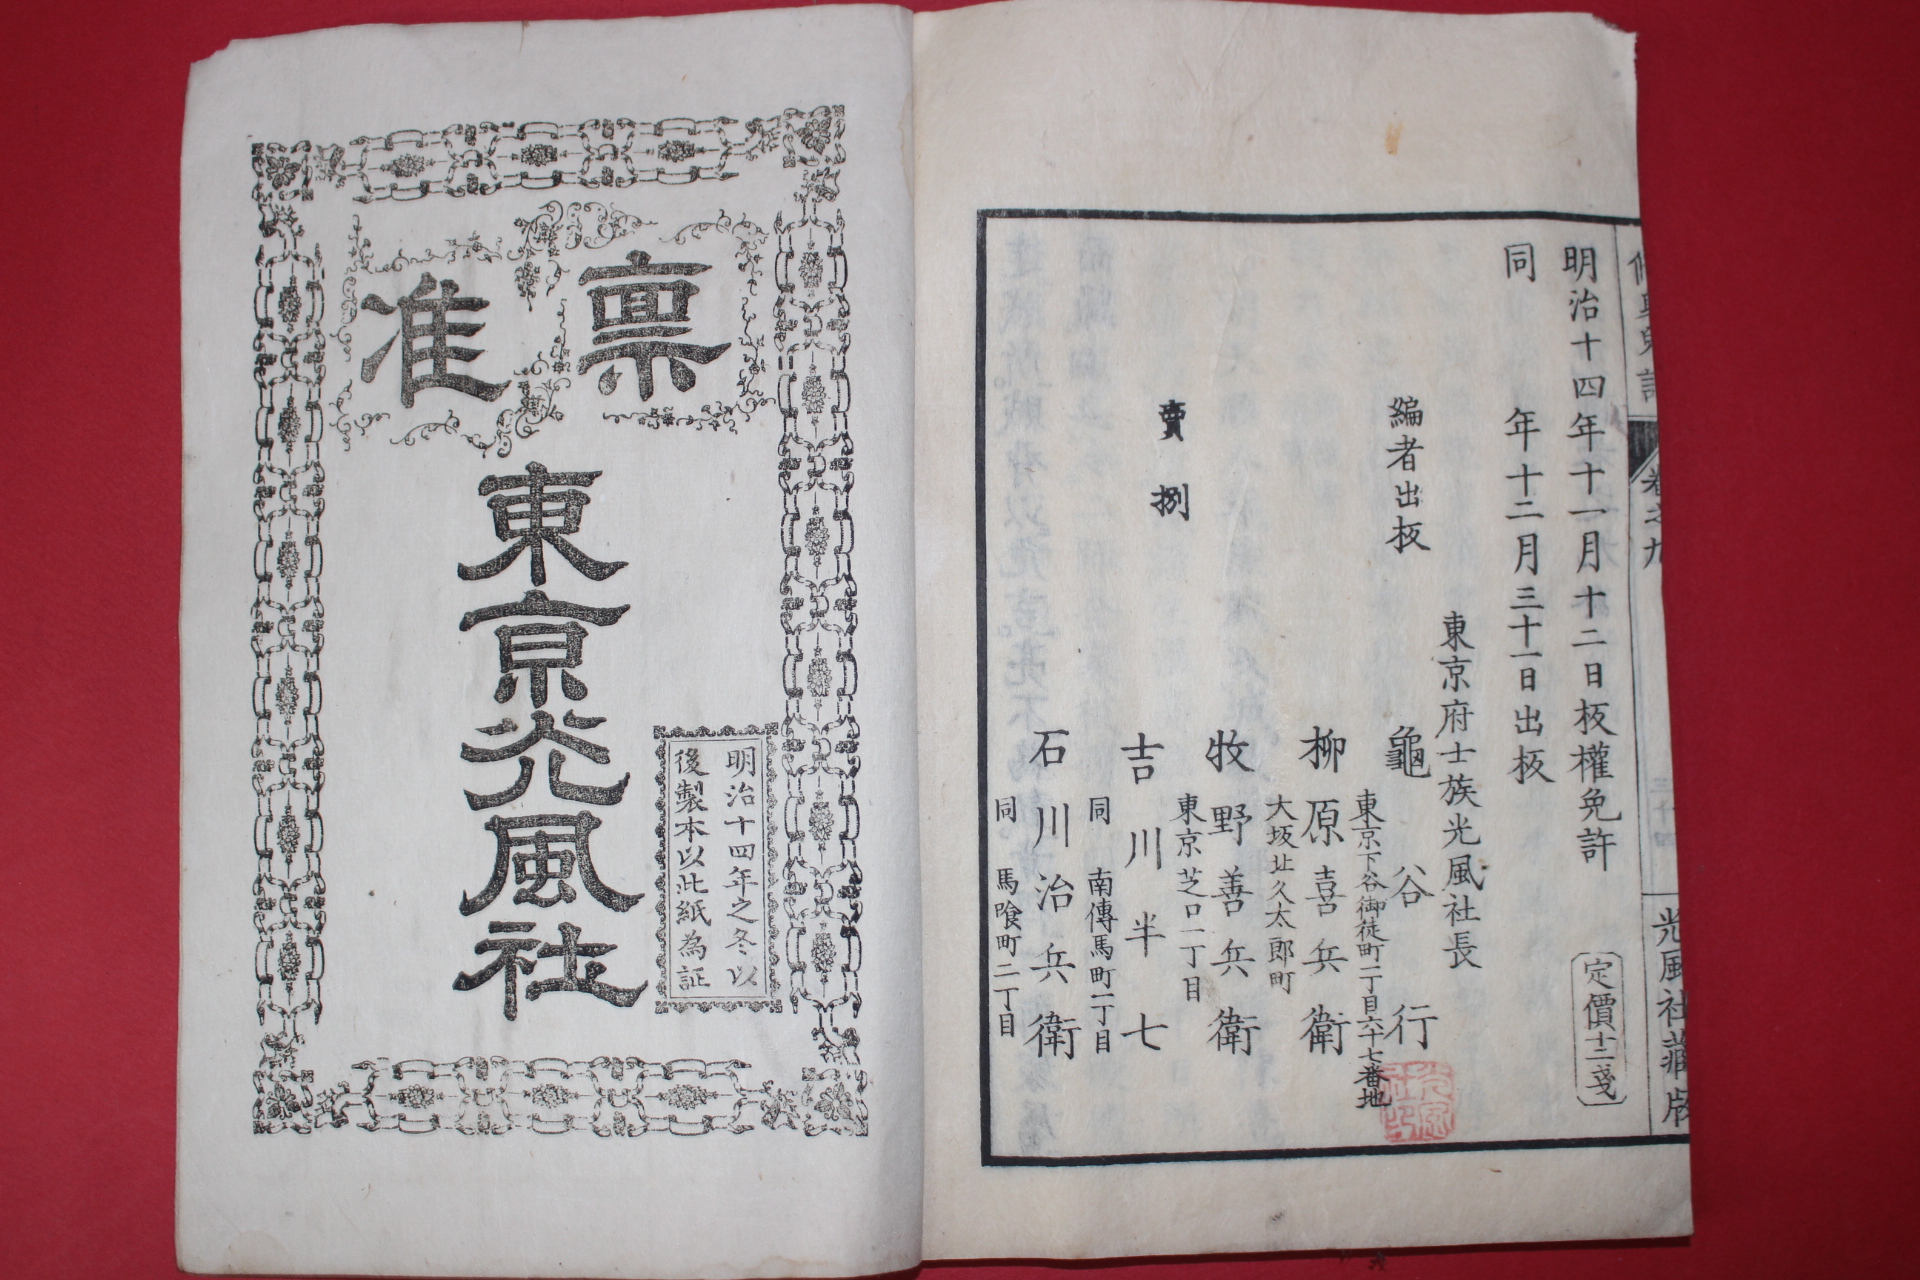 修身児訓
卷之九
光風社蔵版
明治十四年十一月十二日板權免許
同年十二月三十一日出板
定價十二戔
東京府士族光風社長
編者出板
龜谷行
東京下谷御徒町一丁目六十七番地
柳原喜兵衛
大坂北久太郎町
賣捌
牧野善兵衛
東京芝口一丁目
吉川半七
同南傳馬町一丁目
石川治兵衛
同馬喰町二丁目
稟准
東京光風社
明治十四年之冬以
後製本以此紙為証